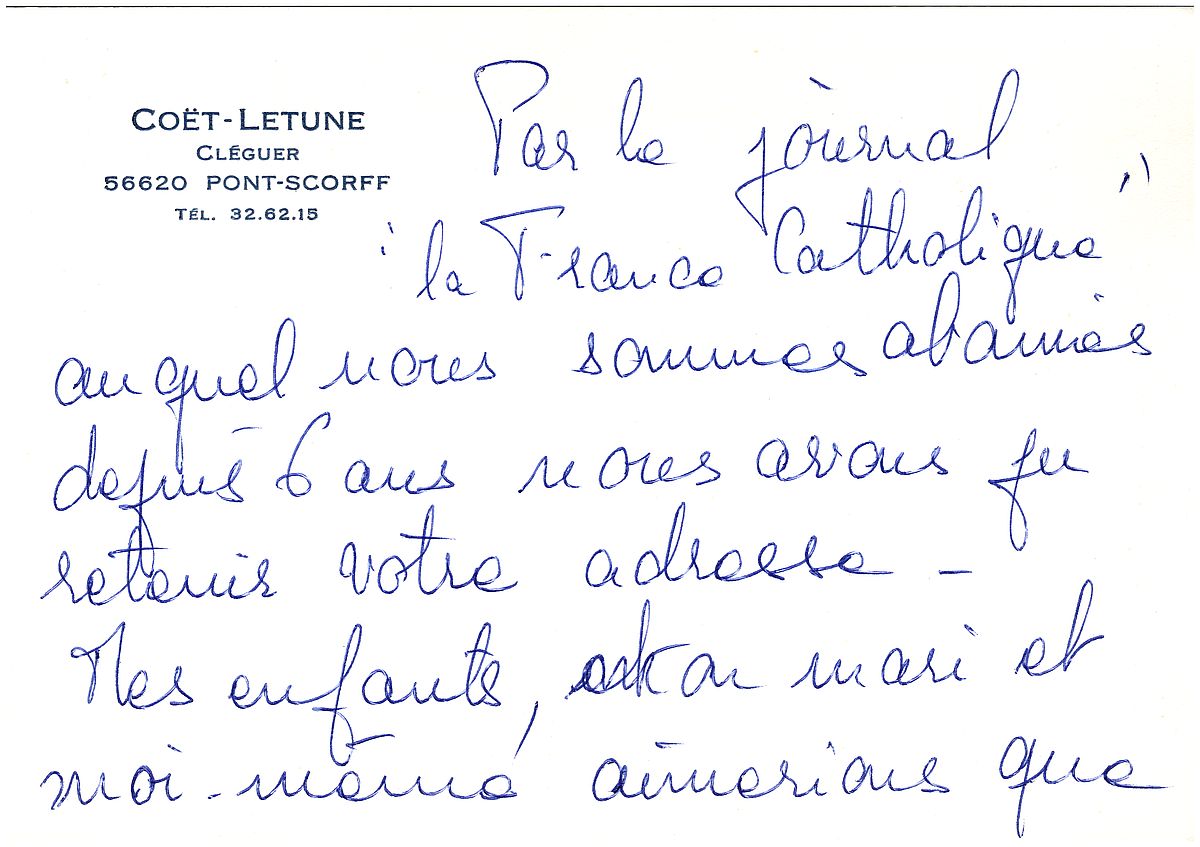 COËT-LETUNE
CLÉGUER
56620 PONT-SCORFF
TÉL. 32.62.15
Par le journal
"la France Catholique"
auquel nous sommes abonnés
depuis 6 ans nous avons pu
retenir votre adresse -
Mes enfants, mon mari et
moi-même aimerions que